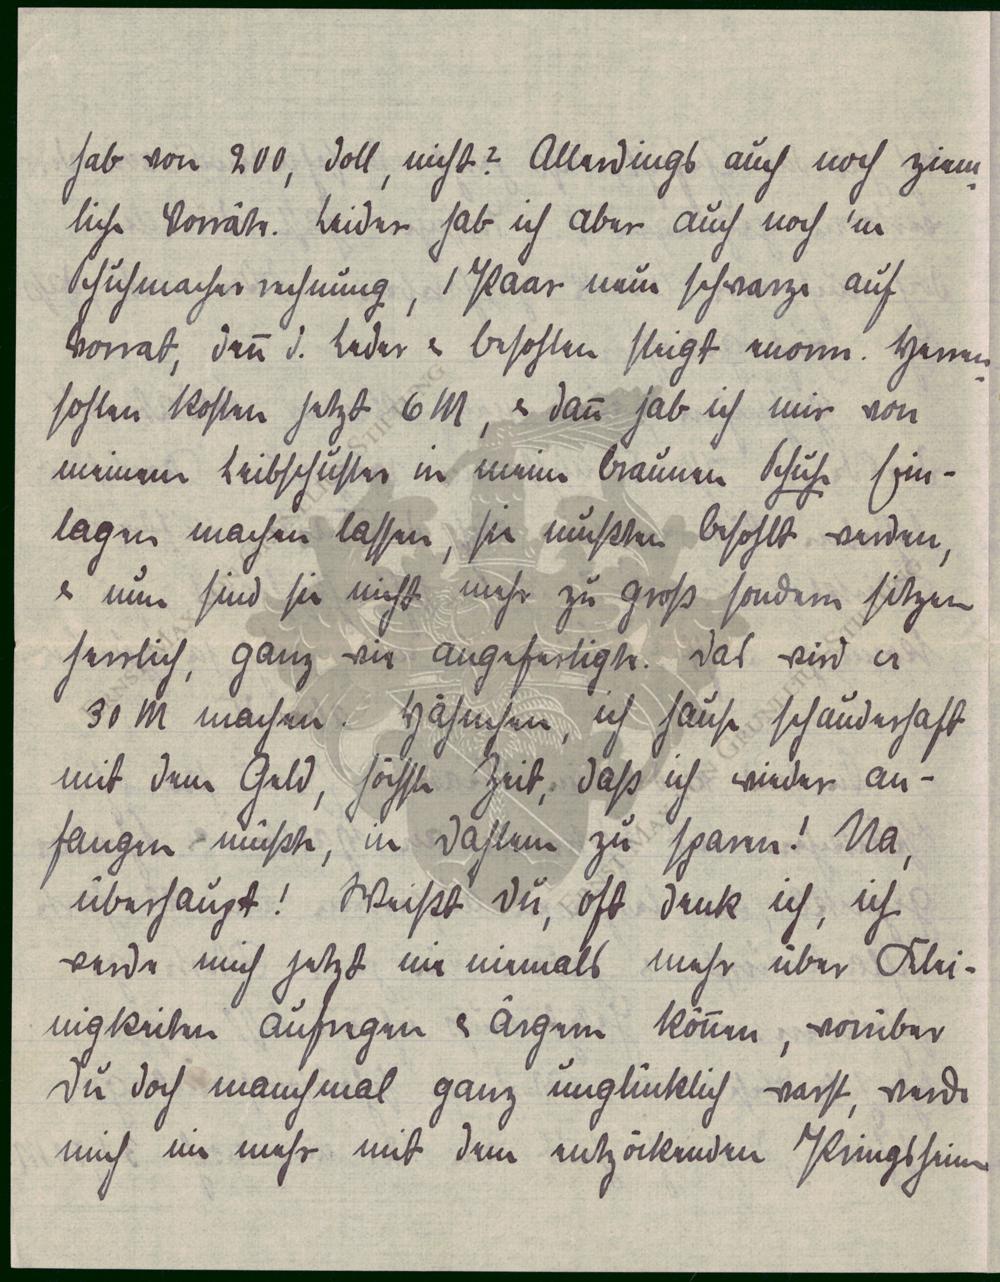 hab von 200, doll, nicht? Allerdings auch noch ziem-
liche Vorräte. Leider hab ich aber auch noch 'ne
Schuhmacherrechnung, 1 Paar neue schwarze auf
Vorrat, den̅ d. Leder & besohlen steigt enorm. Herren-
sohlen kosten jetzt 6 M, & dan̅ hab ich mir von
meinem Leibschuster in meine braunen Schuhe Ein-
lagen machen lassen, sie mußten besohlt werden,
& nun sind sie nicht mehr zu groß sondern sitzen
herrlich, ganz wie angefertigte. Das wird ca
30 M machen. Hänschen, ich hause schauderhaft
mit dem Geld, höchste Zeit, daß ich wieder an-
fangen müßte, in Dahlem zu sparen! Na,
überhaupt! Weißt Du, oft denk ich, ich
werde mich jetzt nie niemals mehr über Klei-
nigkeiten aufregen & ärgern kön̅en, worüber
Du doch manchmal ganz unglücklich warst, werde
mich nie mehr mit dem entzückenden Pringsheim